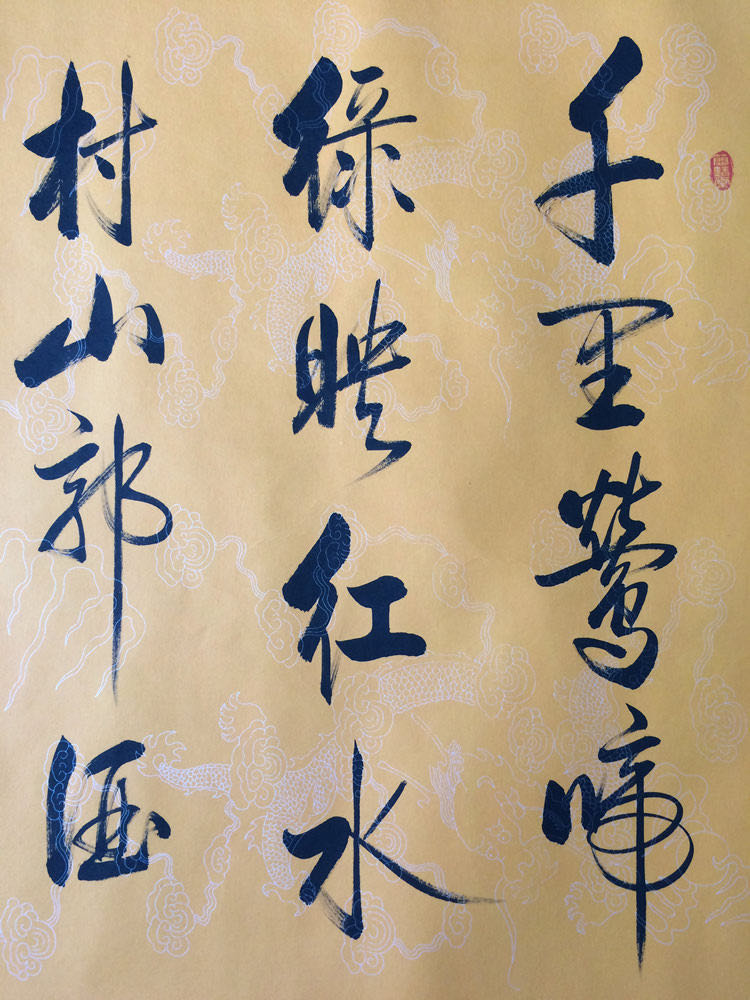 千里莺啼
绿映红水
村山郭酒